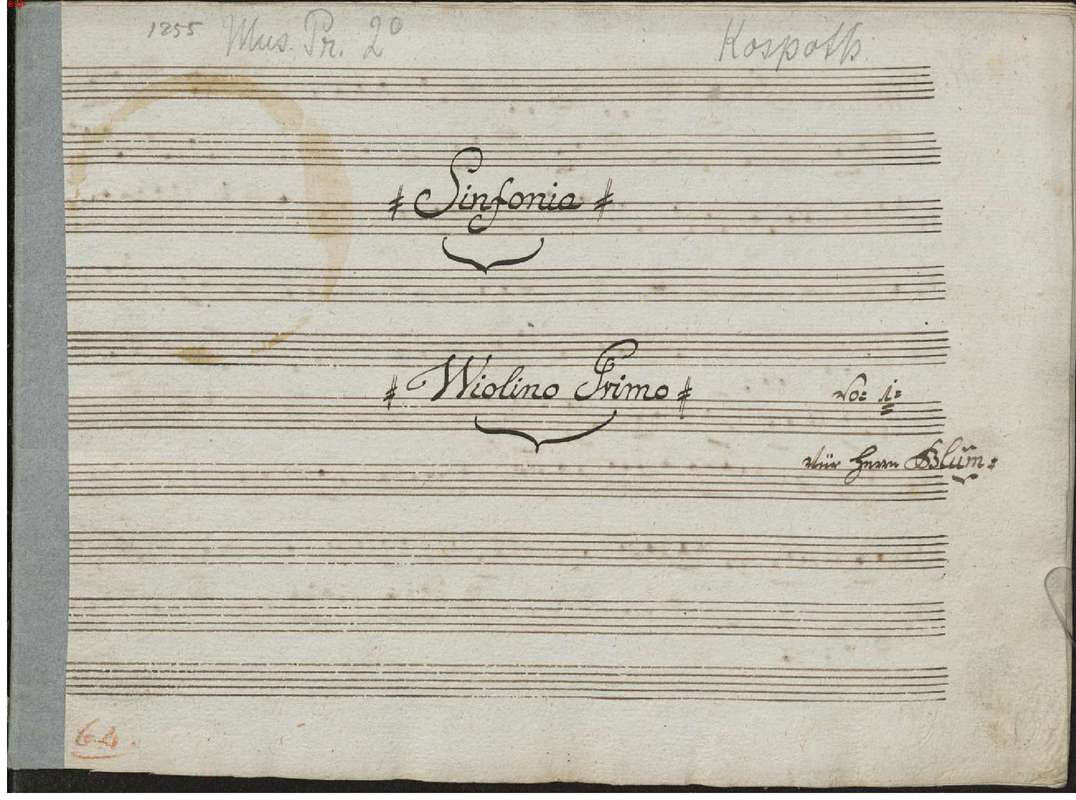 1255 Mus. Pr. 2° Kospoth
Sinfonia
Wiolino Primo
No: 1:
Vür Herrn Blum:
64